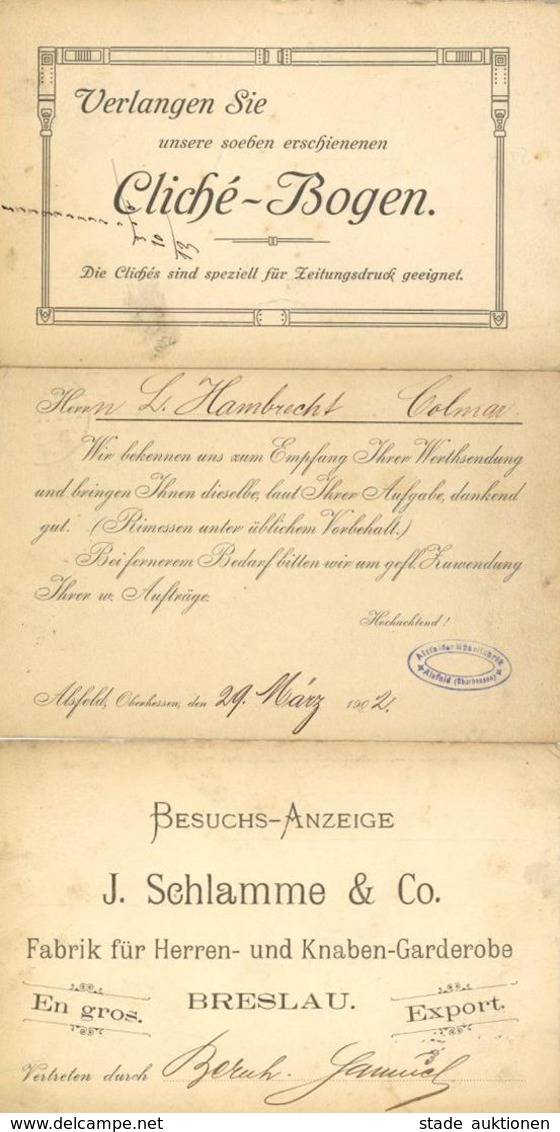 Verlangen Sie
unsere soeben erschienenen
Cliché-Bogen.
10/13
Die Clichés sind speziell für Zeitungsdruck geeignet.
Herrn L. Hambrecht Colmar
Wir bekennen uns zum Empfang Ihrer Werthsendung
und bringen Ihnen dieselbe, laut Ihrer Aufgabe, dankend
gut. (Rimessen unter üblichem Vorbehalt.)
Bei fernerem Bedarf bitten wir um gefl. Zuwendung
Ihrer w. Aufträge.
Hochachtend!
Alsfelder Möbelfabrik
Alsfeld (Oberhessen)
Alsfeld, Oberhessen, den 29. März 1902.
BESUCHS-ANZEIGE
J. Schlamme & Co.
Fabrik für Herren- und Knaben-Garderobe
En gros. BRESLAU. Export.
Vertreten durch Bernh. Samuel
stade auktionen